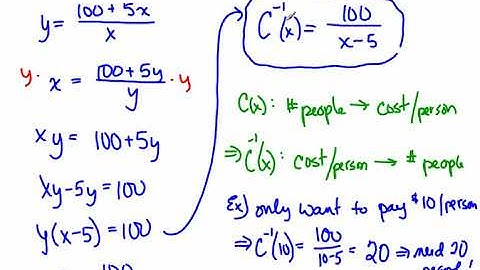 y = (100 + 5x)/x
y· x = (100 + 5y)/y ·y
xy = 100 + 5y
xy - 5y = 100
y(x - 5) = 100
100
C⁻¹(x) = 100/(x - 5)
C(x): # people → cost/person
⇒ C⁻¹(x): cost/person → # people
Ex) only want to pay $10/person
⇒ C⁻¹(10) = 100/(10-5) = 20 ⇒ need 20